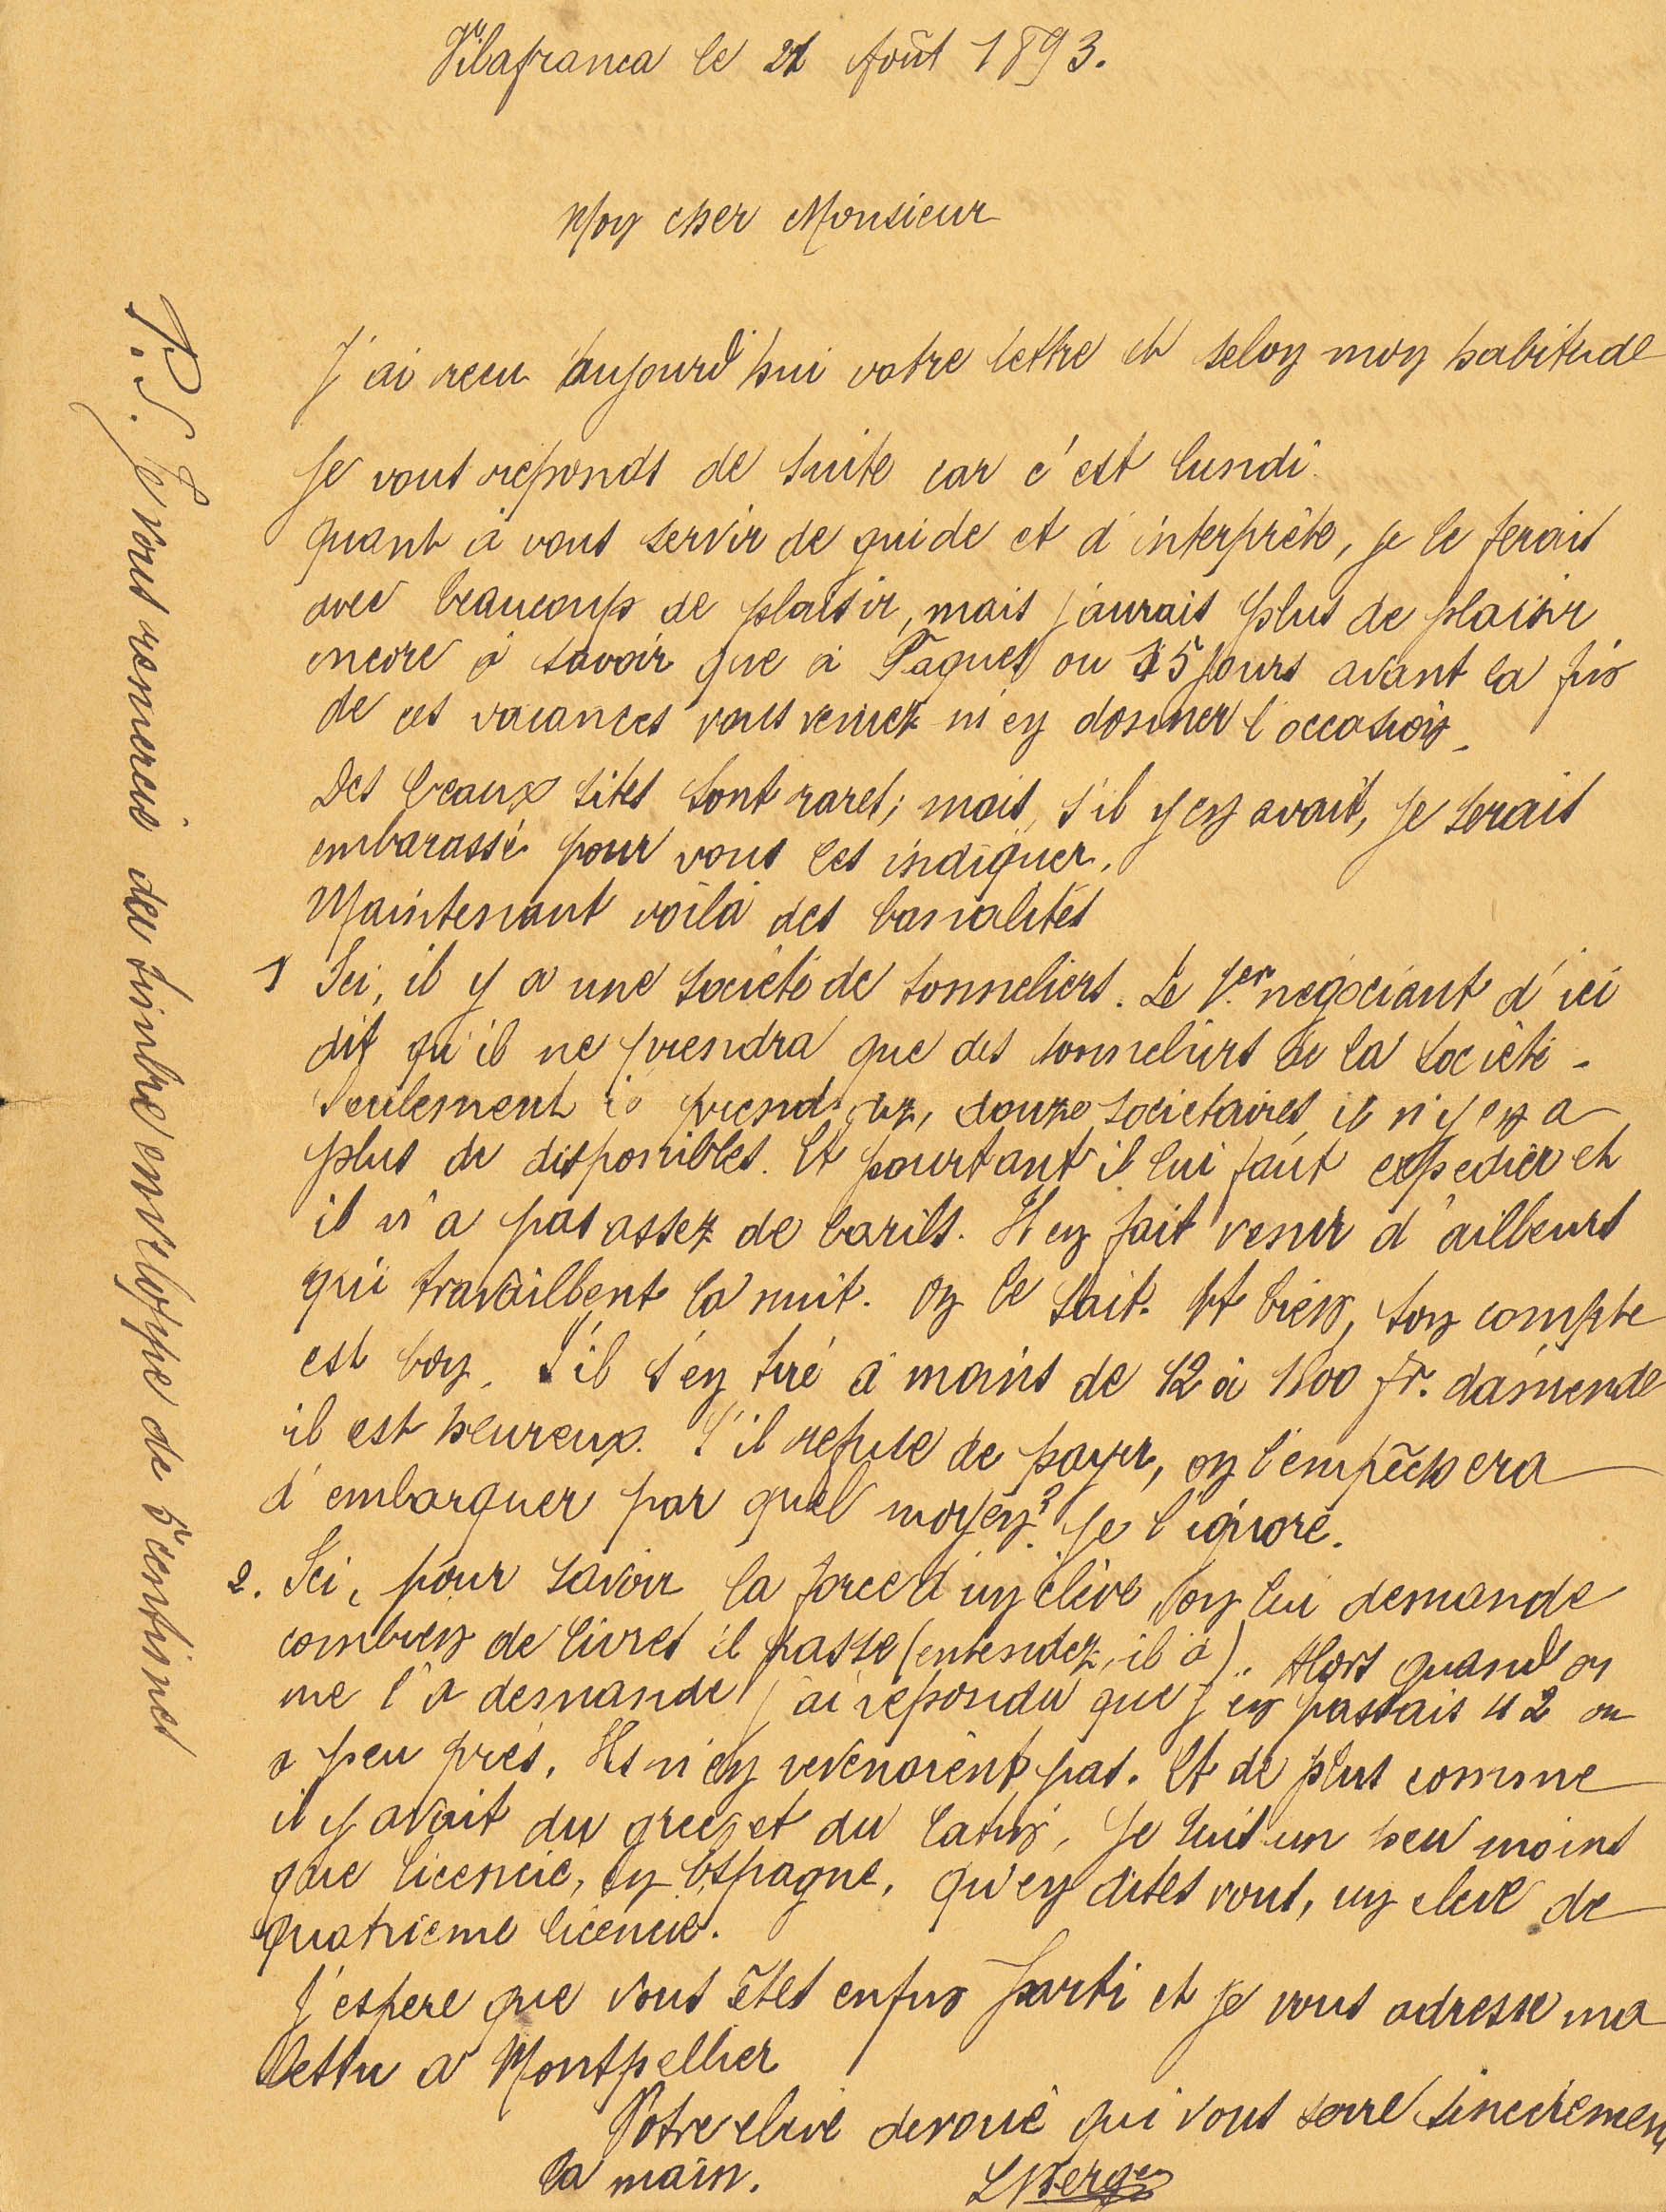 Vilafranca le 21 Août 1893.
Mon cher Monsieur
J'ai recu aujourd'hui votre lettre et selon mon habitude
je vous reponds de suite car c'est lundi.
quant à vous servir de guide et d'interprète, je le ferais
avec beaucoup de plaisir, mais j'aurais plus de plaisir
encore à savoir que à Paques ou 15 jours avant la fin
de ces vacances vous veniez m'en donner l'occasion.
Des beaux sites sont rares; mais, s'il y en avait, je serais
embarassé pour vous les indiquer.
Maintenant voila des banalités
1 Ici, il y a une société de tonneliers. Le 1.er négociant d'ici
dit qu'il ne prendra que des tonneliers de la société -
Seulement prend dix, douze societaires il n'y en a
plus de disponibles. Et pourtant il lui faut expedier et
il n'a pas assez de barils. Il en fait venir d'ailleurs
qui travaillent la nuit. On le sait. Et bien, son compte
est bon. S'il s'en tire à moins de 12 à 1500 fr. d'amende
il est heureux. S'il refuse de payer, on l'empêchera
d'embarquer par quel moyen? Je l'ignore.
2. Ici, pour savoir la force d'un élève, on lui demande
combien de livres il passe (entendez, il a).. Alors quand on
me l'a demandé j'ai repondu que j'en passais 42 ou
a peu près. Ils n'en revenaient pas. Et de plus comme
il y avait du grec et du latin, je suis un peu moins
que licencié, en Espagne, qu'en dites vous, un eleve de
quatrieme licencié.
J'espere que vous êtes enfin parti et je vous adresse ma
lettre a Montpellier
Votre eleve devoué qui vous serre sincèremen
la main.
P.S. Je vous remercie des timbres enveloppe de 5 centimes